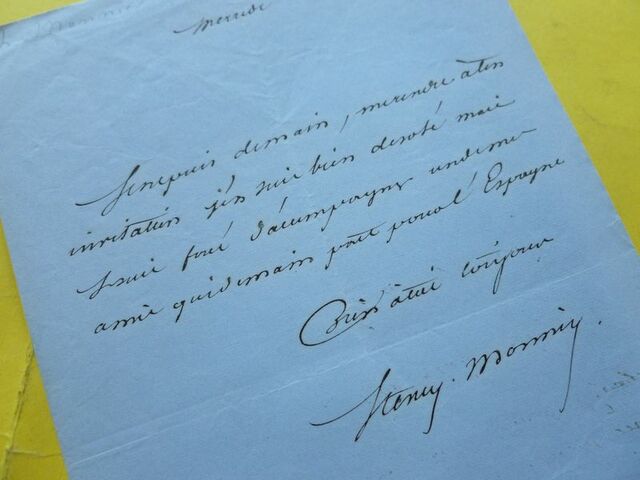 Mercredi
Je ne puis demain, me rendre à ton
invitation j'en suis bien desolé mais
je suis forcé d'accompagner un de mes
amis qui demain part pour l'Espagne
Bien à toi toujours
Henry. Monnier.